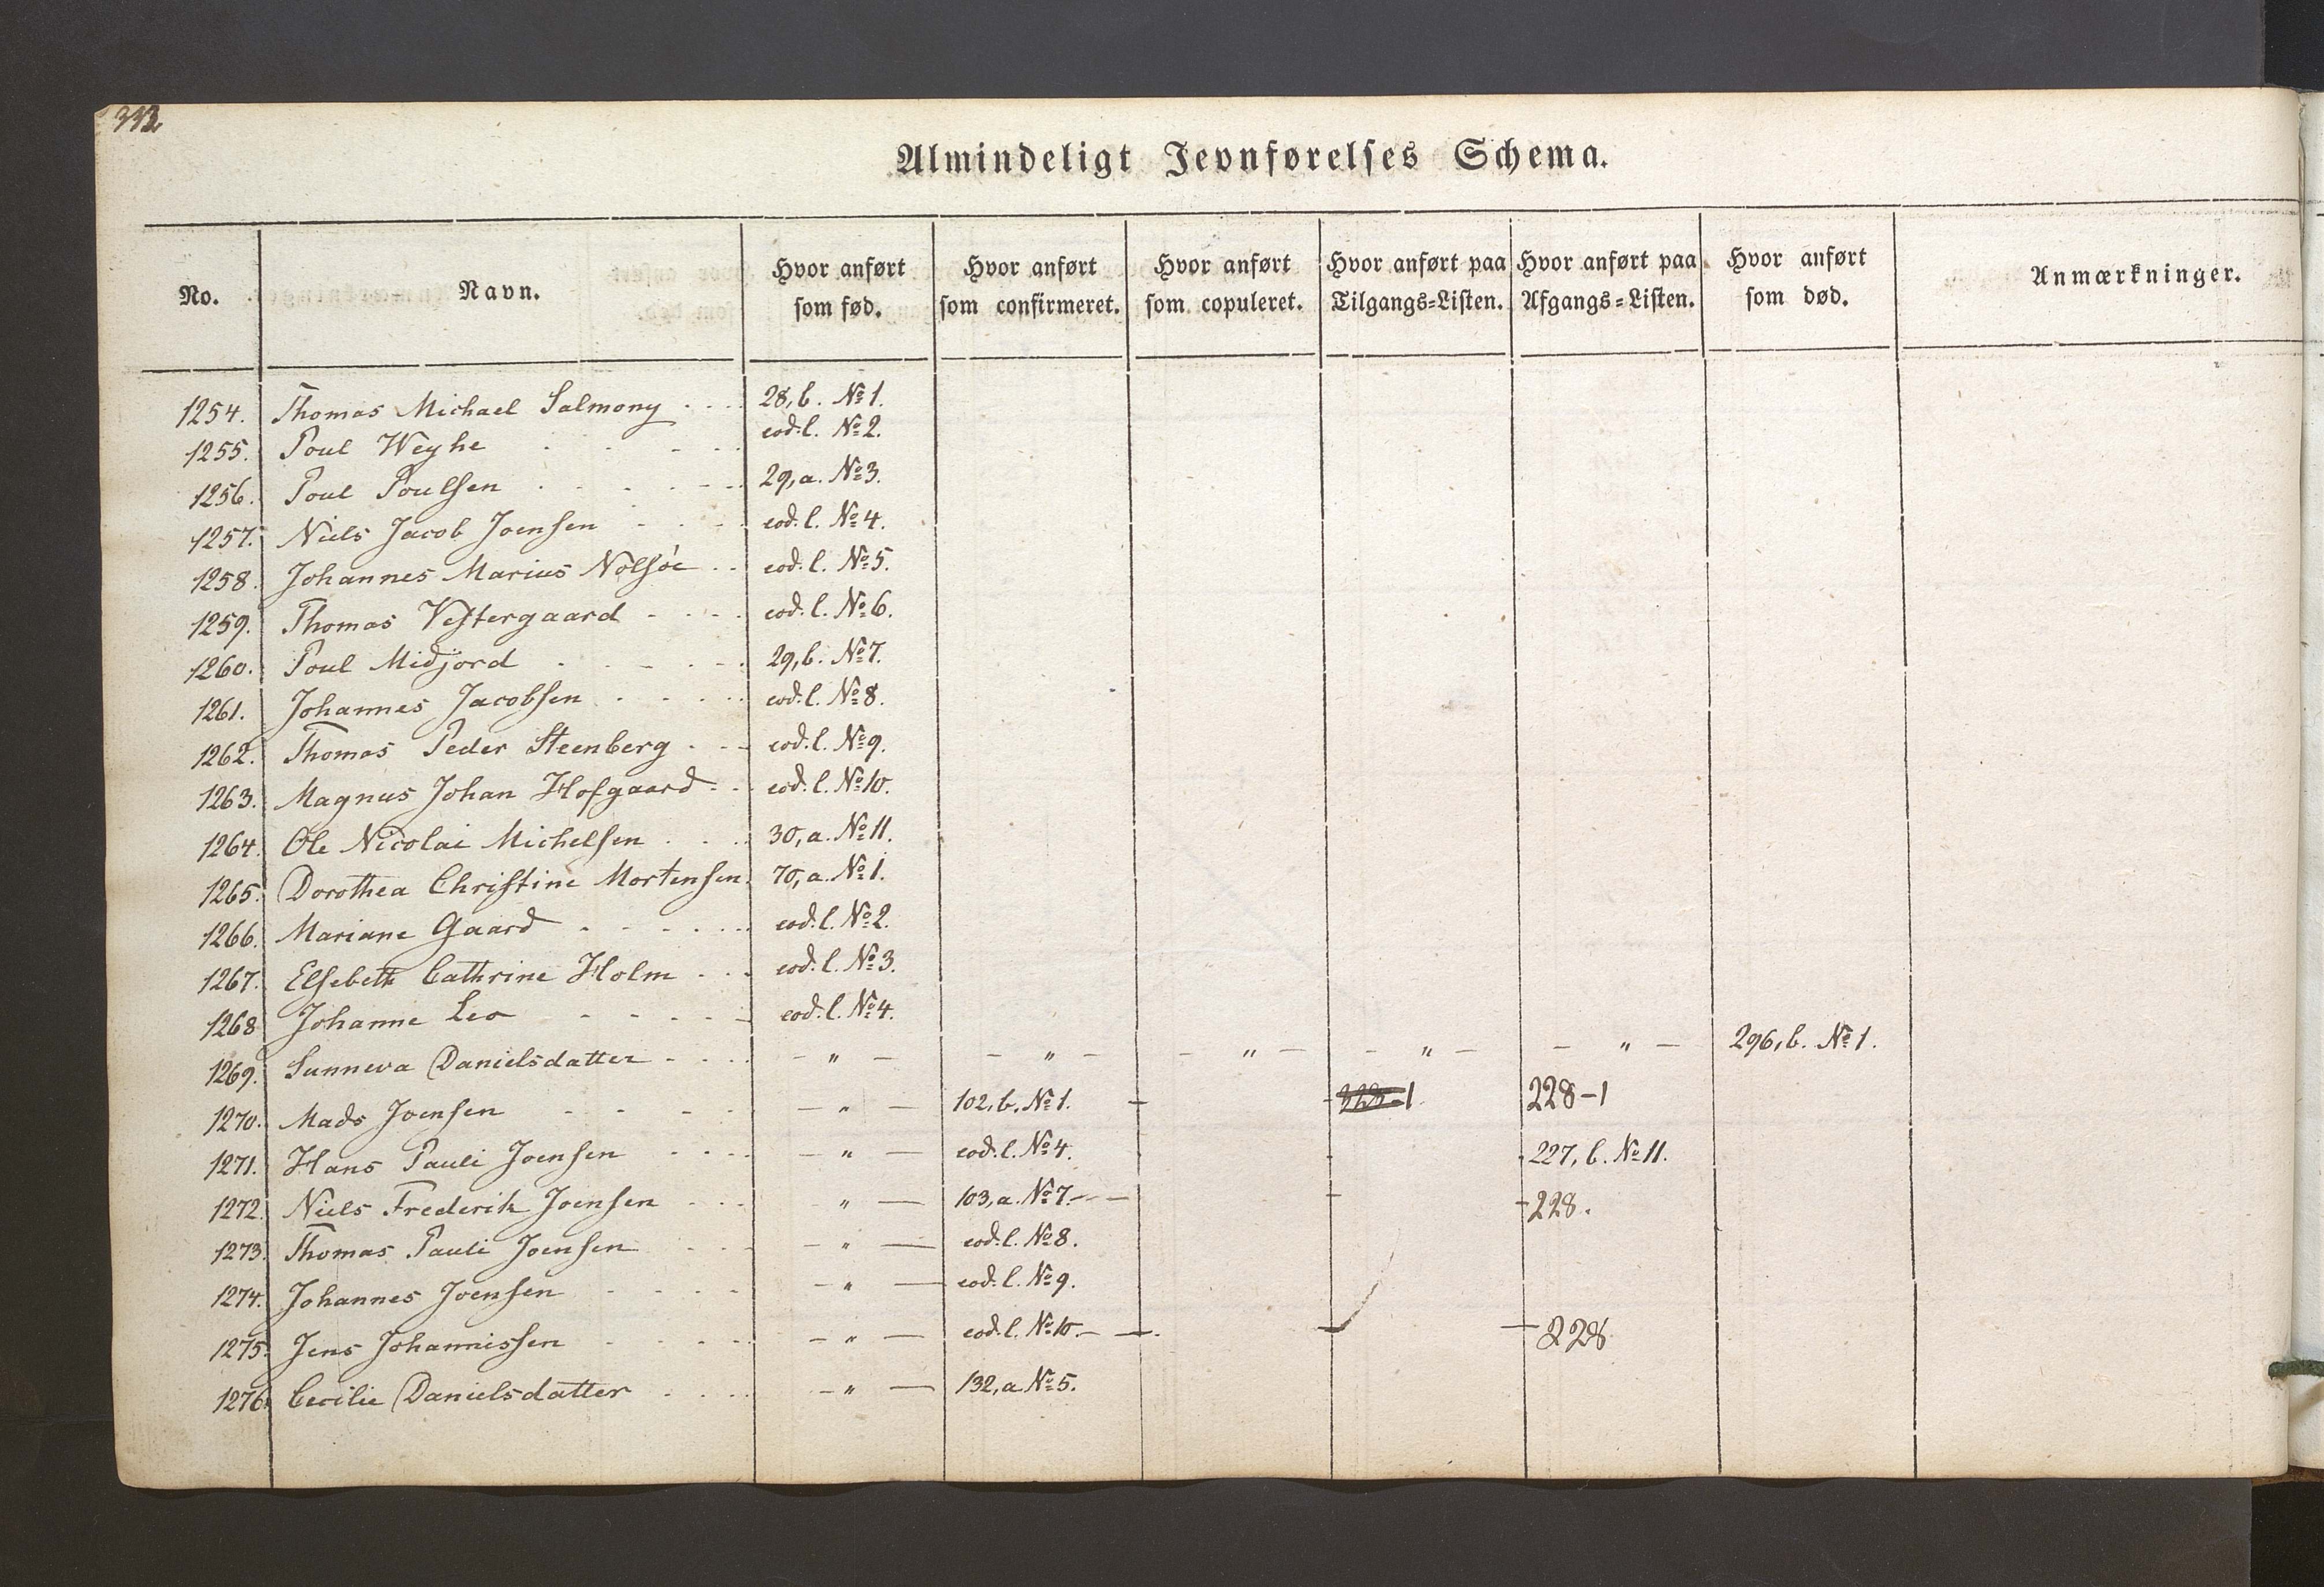 Almindeligt Jevnførelses Schema.
No. Navn. Hvor anført som fød. Hvor anført som confirmeret. Hvor anført som copuleret. Hvor anført paa Tilgangs-Listen. Hvor anført paa Afgangs-Listen. Hvor anført som død. Anmærkninger.
1254. Thomas Michael Salmony . . . 28, b. No 1.
1255. Poul Weyhe . . . . eod. l. No 2.
1256. Poul Poulsen . . . . . 29, a. No 3.
1257. Niels Jacob Joensen . . . eod. l. No 4.
1258. Johannes Marius Nolsöe . . eod. l. No 5.
1259. Thomas Vestergaard - - - - eod. l. No 6.
1260. Poul Midjord . . . . . 29, b. No 7.
1261. Johannes Jacobsen . . . . eod. l. No 8.
1262. Thomas Peder Steenberg . . . eod. l. No 9.
1263. Magnus Johan Hofgaard - - eod. l. No 10.
1264. Ole Nicolai Michelsen . . . 30, a. No 11.
1265. Dorothea Christine Mortensen. 70, a. No 1.
1266. Mariane Gaard - - - - - eod. l. No 2.
1267. Elsebeth Cathrine Holm . . . eod. l. No 3.
1268 Johanne Leo - - - - - eod. l. No 4.
1269. Sunneva Danielsdatter - - - - - " - - " - - " - - " - - " - 296, b. No 1.
1270. Mads Joensen - - - - - " - 102, b. No 1. - - 228-1 228-1
1271. Hans Pauli Joensen - - - - - " - eod. l. No 4. 227, b. No 11.
1272. Niels Frederik Joensen - - - " - 103, a. No 7. - - - - 228.
1273. Thomas Pauli Joensen - - - - " - eod. l. No 8.
1274. Johannes Joensen - - - - - " - eod. l. No 9.
1275. Jens Johannissen - - - - - " - eod. l. No 10. - - - - 228
1276. Cecilie Danielsdatter . . . . - " - 132, a No 5.